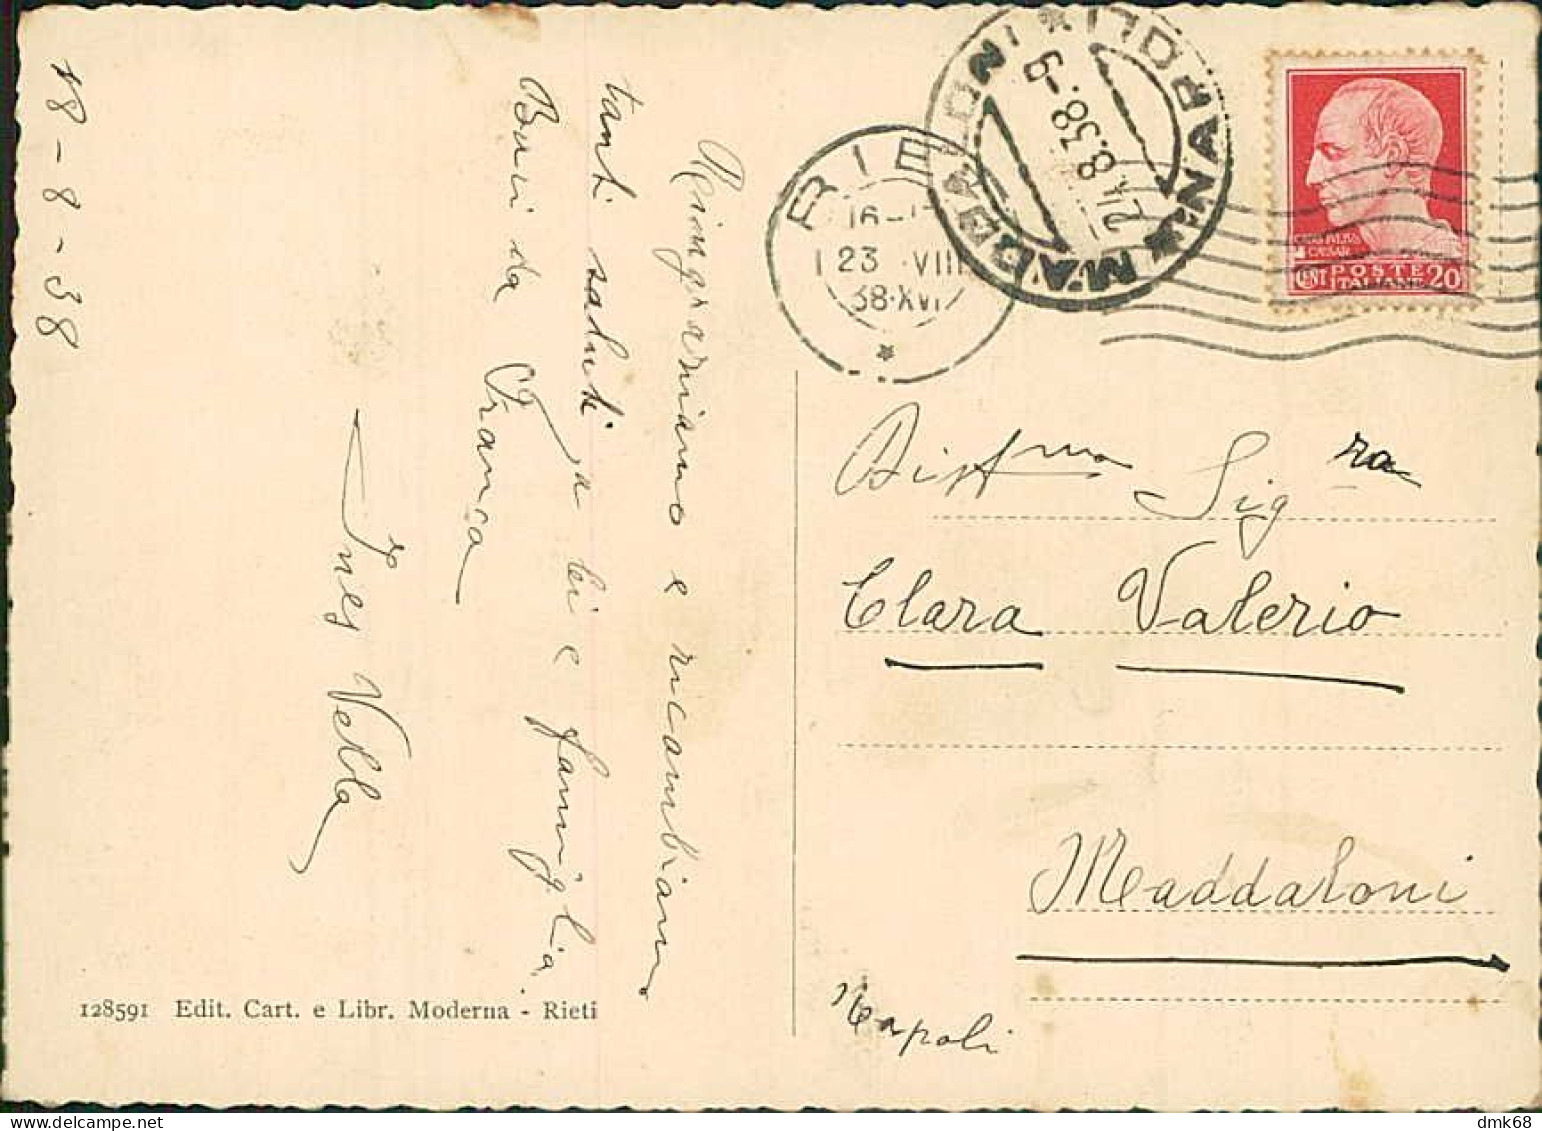 18-8-38
Ringraziamo e ricambiamo
tanti saluti a lei e famiglia
Baci da Franca
Ines Vella
128591 Edit. Cart. e Libr. Moderna - Rieti
RIE
16-1
23 VIII
38·XVI
MADDALONI
NAPOLI
24.8.38.-9
CAIVS IVLIVS
CAESAR
CENT POSTE
ITALIANE 20
Distma Sigra
Clara Valerio
Maddaloni
Napoli
dmk68